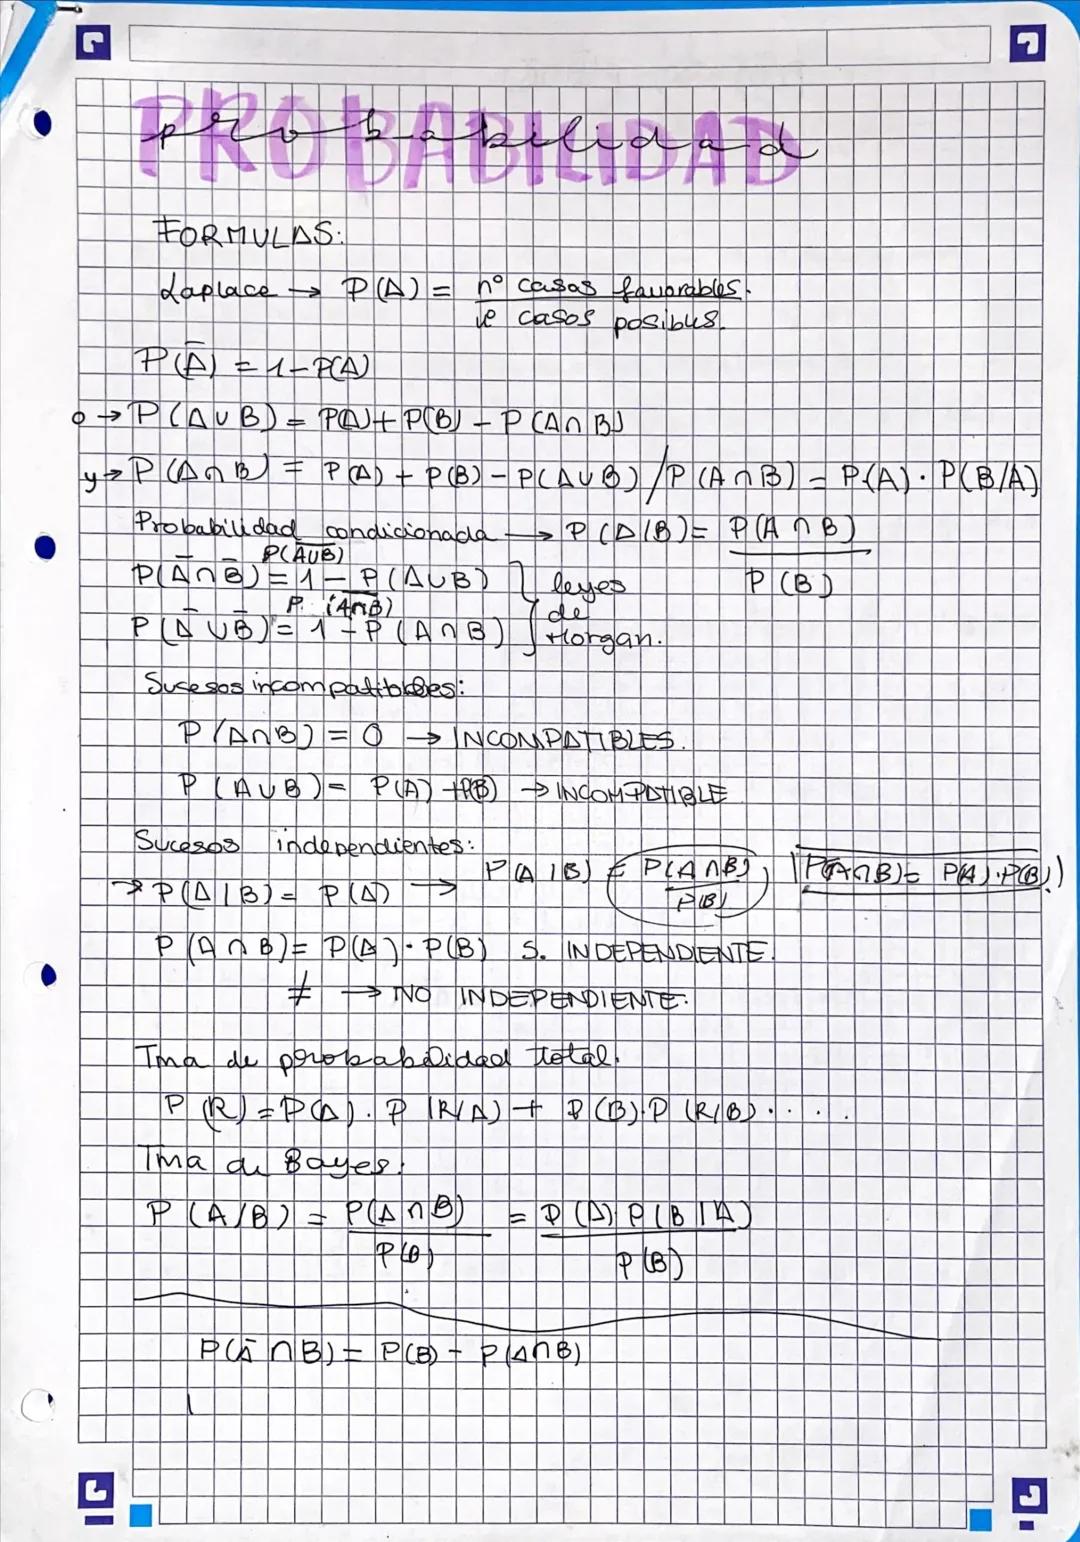 PROBABILIDAD
probabilidad
FORMULAS:
Laplace → P(A) = nº casos favorables.
nº casos posibles.
P(Ā) = 1-P(A)
o → P(A∪B) = P(A)+P(B) - P(A∩B)
y → P(A∩B) = P(A) + P(B) - P(A∪B) / P(A∩B) = P(A) · P(B/A)
Probabilidad condicionada → P(A|B) = P(A∩B)
P(B)
P(A̅∪̅B̅)
P(Ā∩B̄) = 1 - P(A∪B)
P(A̅∩̅B̅)
P(Ā∪B̄) = 1 - P(A∩B)
leyes
de
Morgan.
Sucesos incompatibles:
P(A∩B) = 0 → INCOMPATIBLES.
P(A∪B) = P(A) + P(B) → INCOMPATIBLE
Sucesos independientes:
→ P(A|B) = P(A) → P(A|B) = P(A∩B) P(A∩B) = P(A)·P(B)
P(B)
P(A∩B) = P(A)·P(B) S. INDEPENDIENTE.
≠ → NO INDEPENDIENTE.
Tma de probabilidad total.
P(R) = P(A). P(R/A) + P(B).P(R/B) .....
Tma de Bayes:
P(A/B) = P(A∩B) = P(A).P(B|A)
P(B) P(B)
P(Ā∩B) = P(B) - P(A∩B)